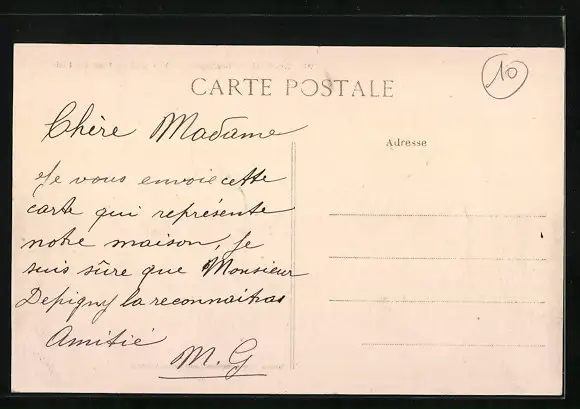 CARTE POSTALE
10
Chère Madame
Adresse
Je vous envoie cette
carte qui représente
notre maison, je
suis sûre que Monsieur
Depigny la reconnaitras
Amitié
M. G